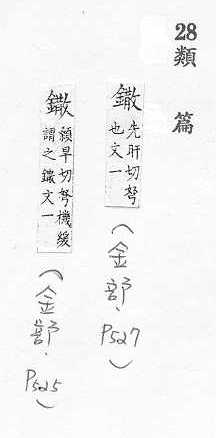 28
類篇
鏾
先旰切弩
也文一
（金部．P527）
鏾
顙旱切弩機緩
謂之鏾文一
（金部．P525）